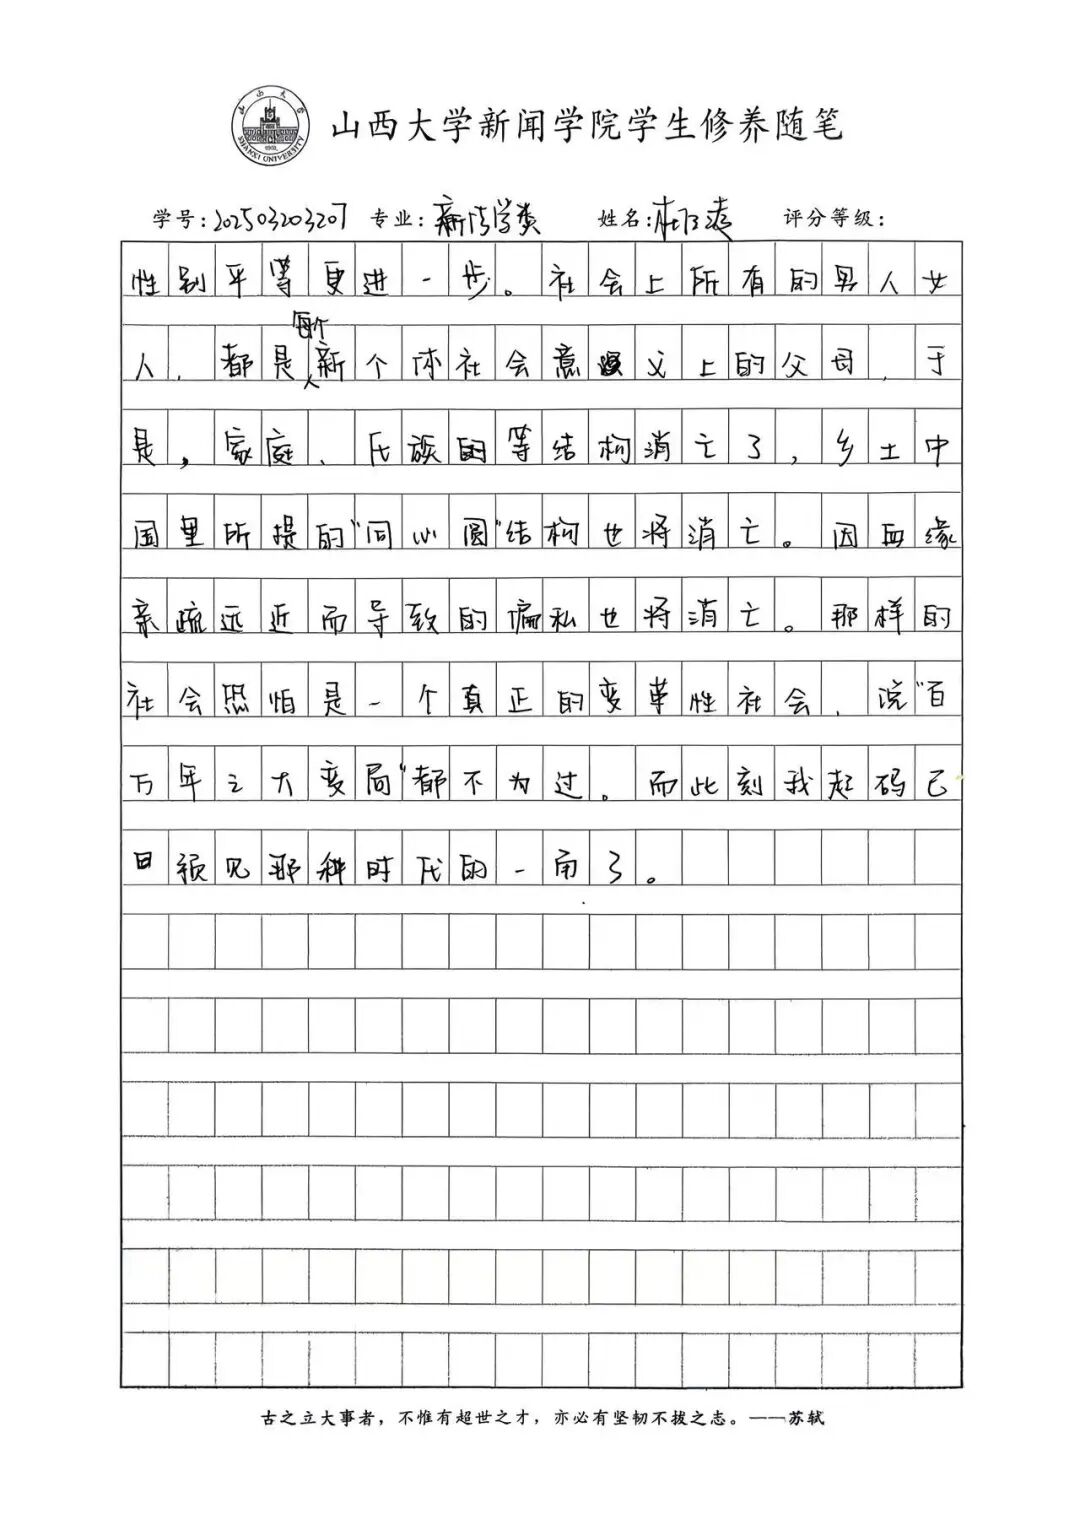 山西大学
SHANXI UNIVERSITY
1902
山西大学新闻学院学生修养随笔
学号:202503203207 专业:新传学类 姓名:杜 评分等级:
性别平等更进一步。社会上所有的男人女
每个
人,都是新个体社会意义上的父母,于
人
是,家庭、氏族的等结构消亡了,乡土中
国里所提的"同心圆"结构也将消亡。因血缘
亲疏远近而导致的偏私也将消亡。那样的
社会恐怕是一个真正的变革性社会,说"百
万年之大变局"都不为过。而此刻我起码已
日预见那种时代的一角了。
古之立大事者,不惟有超世之才,亦必有坚韧不拔之志。——苏轼